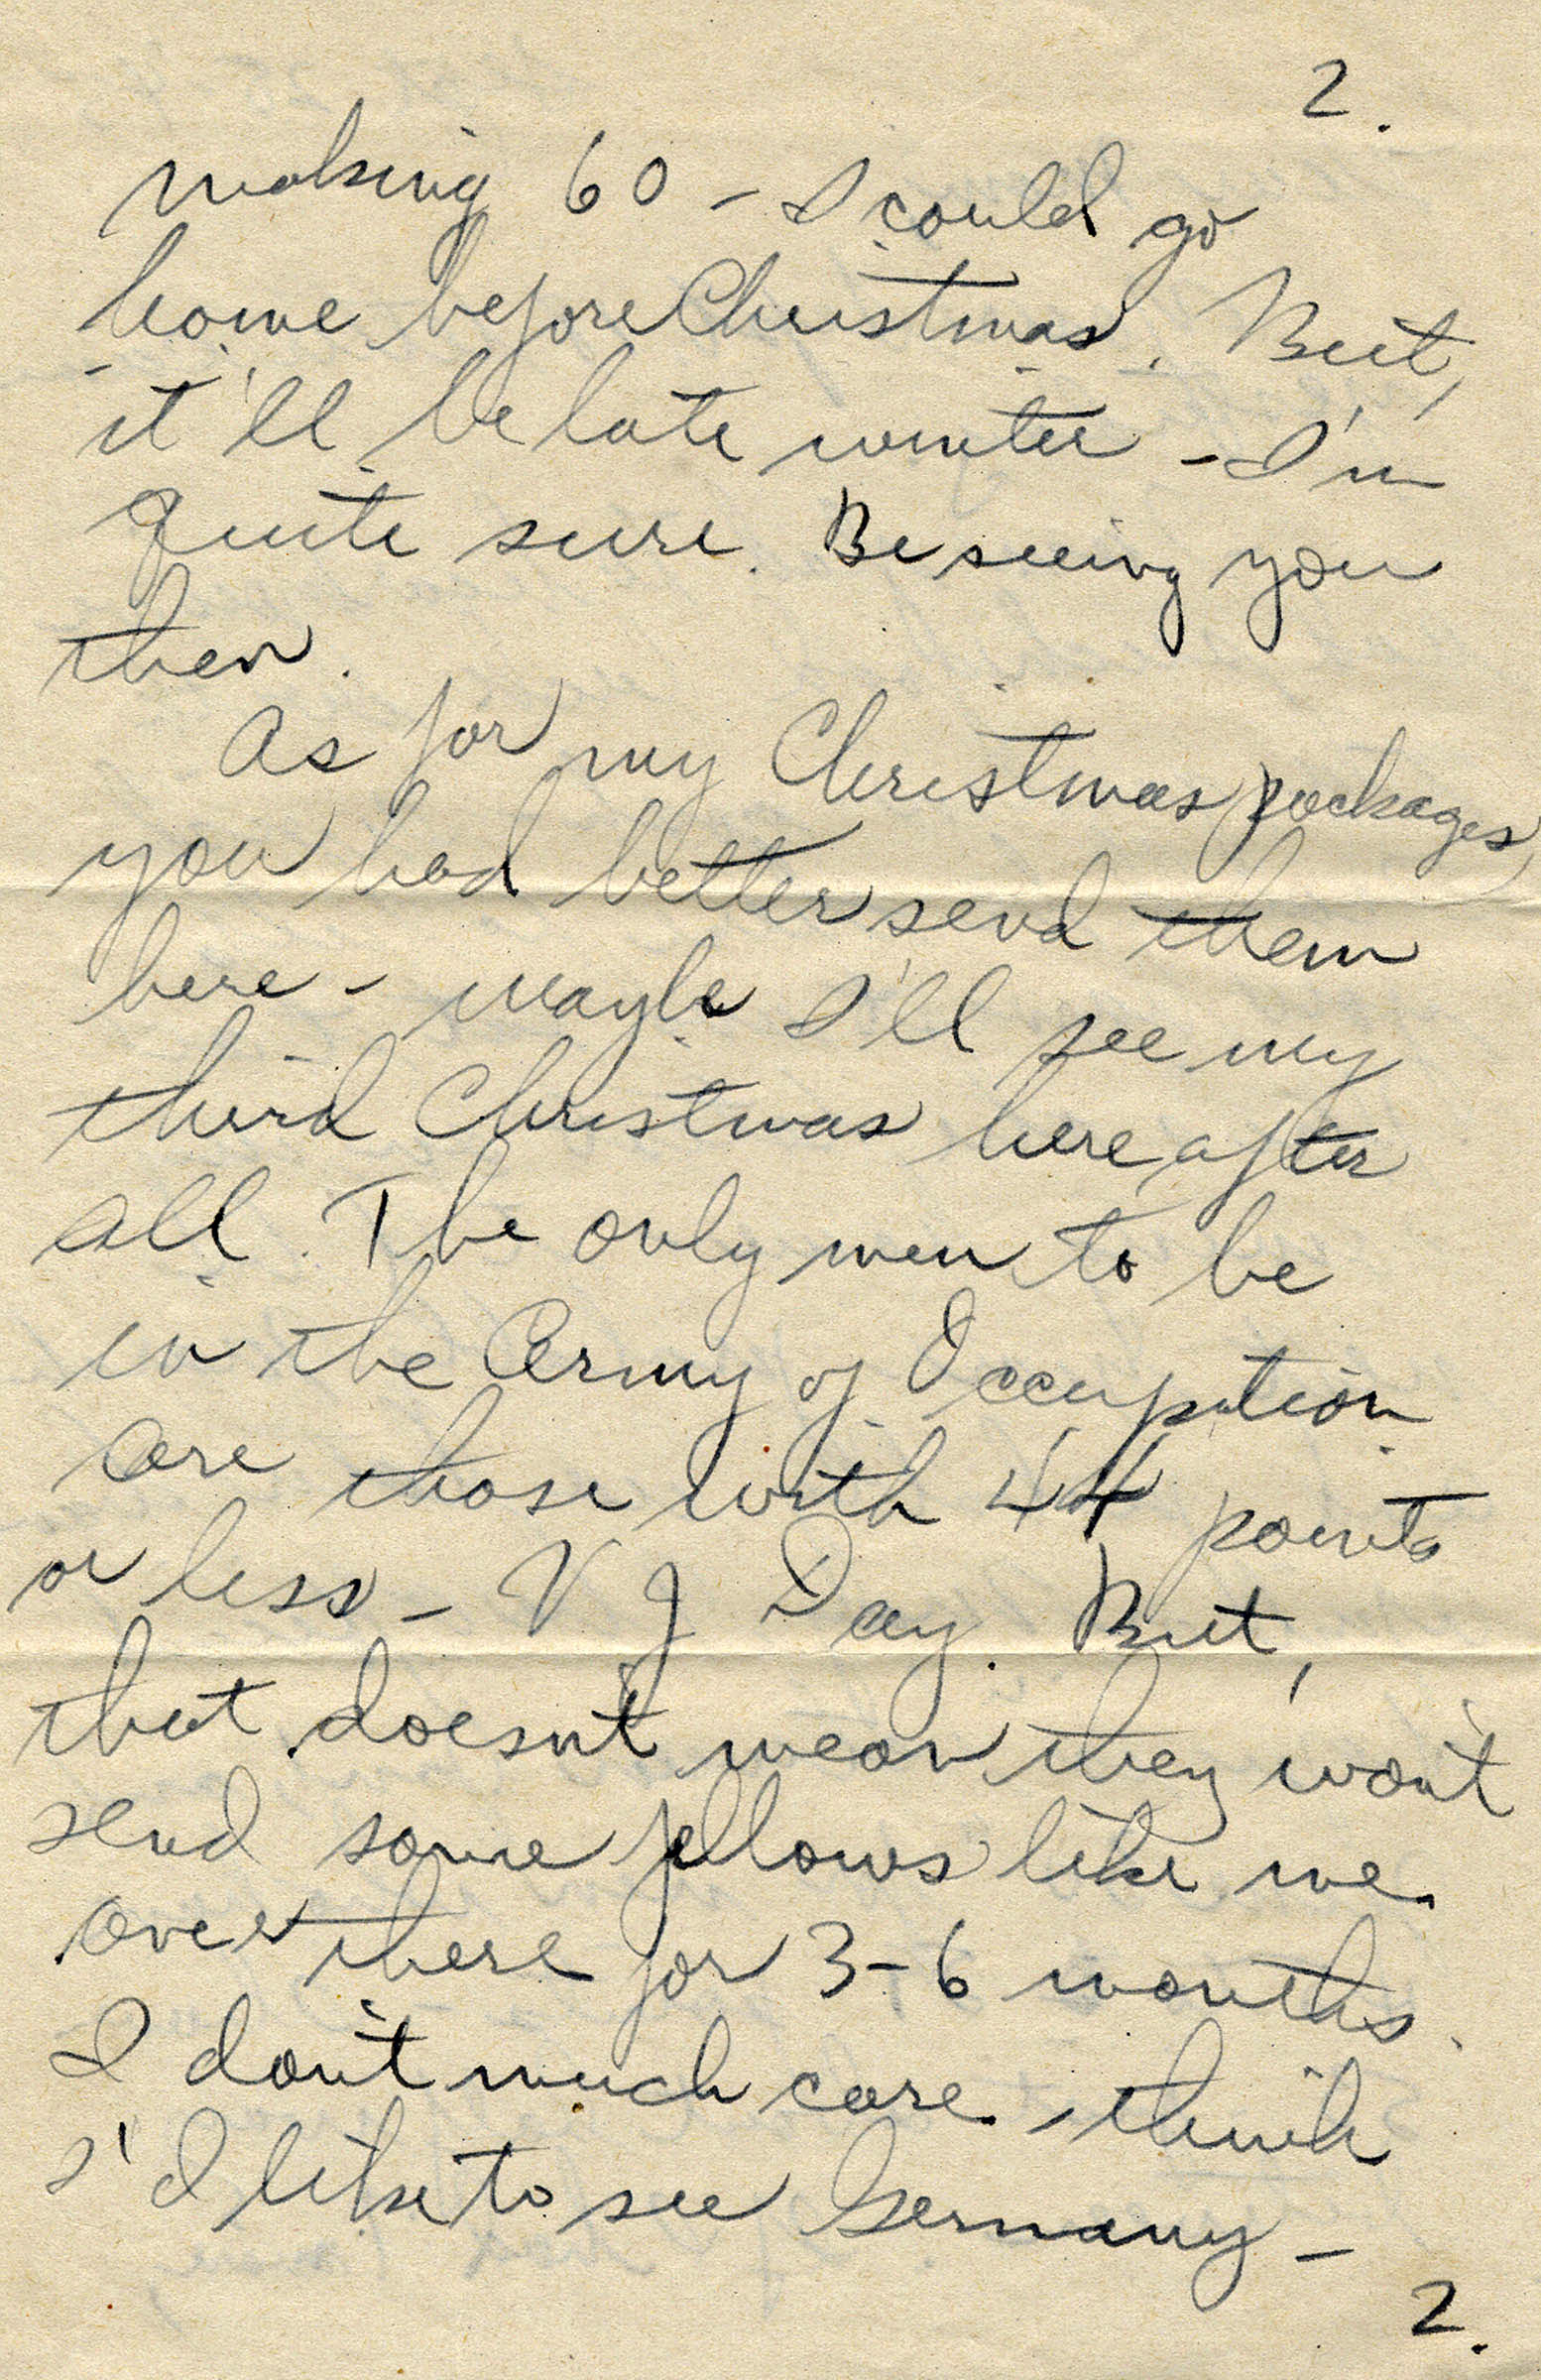 2.
making 60 - I could go
home before Christmas. But,
it'll be late winter - I'm
quite sure. Be seeing you
then.
As for my Christmas packages,
you had better send them
here - maybe I'll see my
third Christmas here after
all. The only men to be
in the Army of Occupation
are those with 44 points
or less - V J Day. But,
that doesn't mean they won't
send some fellows like me
over there for 3-6 months.
I don't much care - think
I'd like to see Germany -
2.